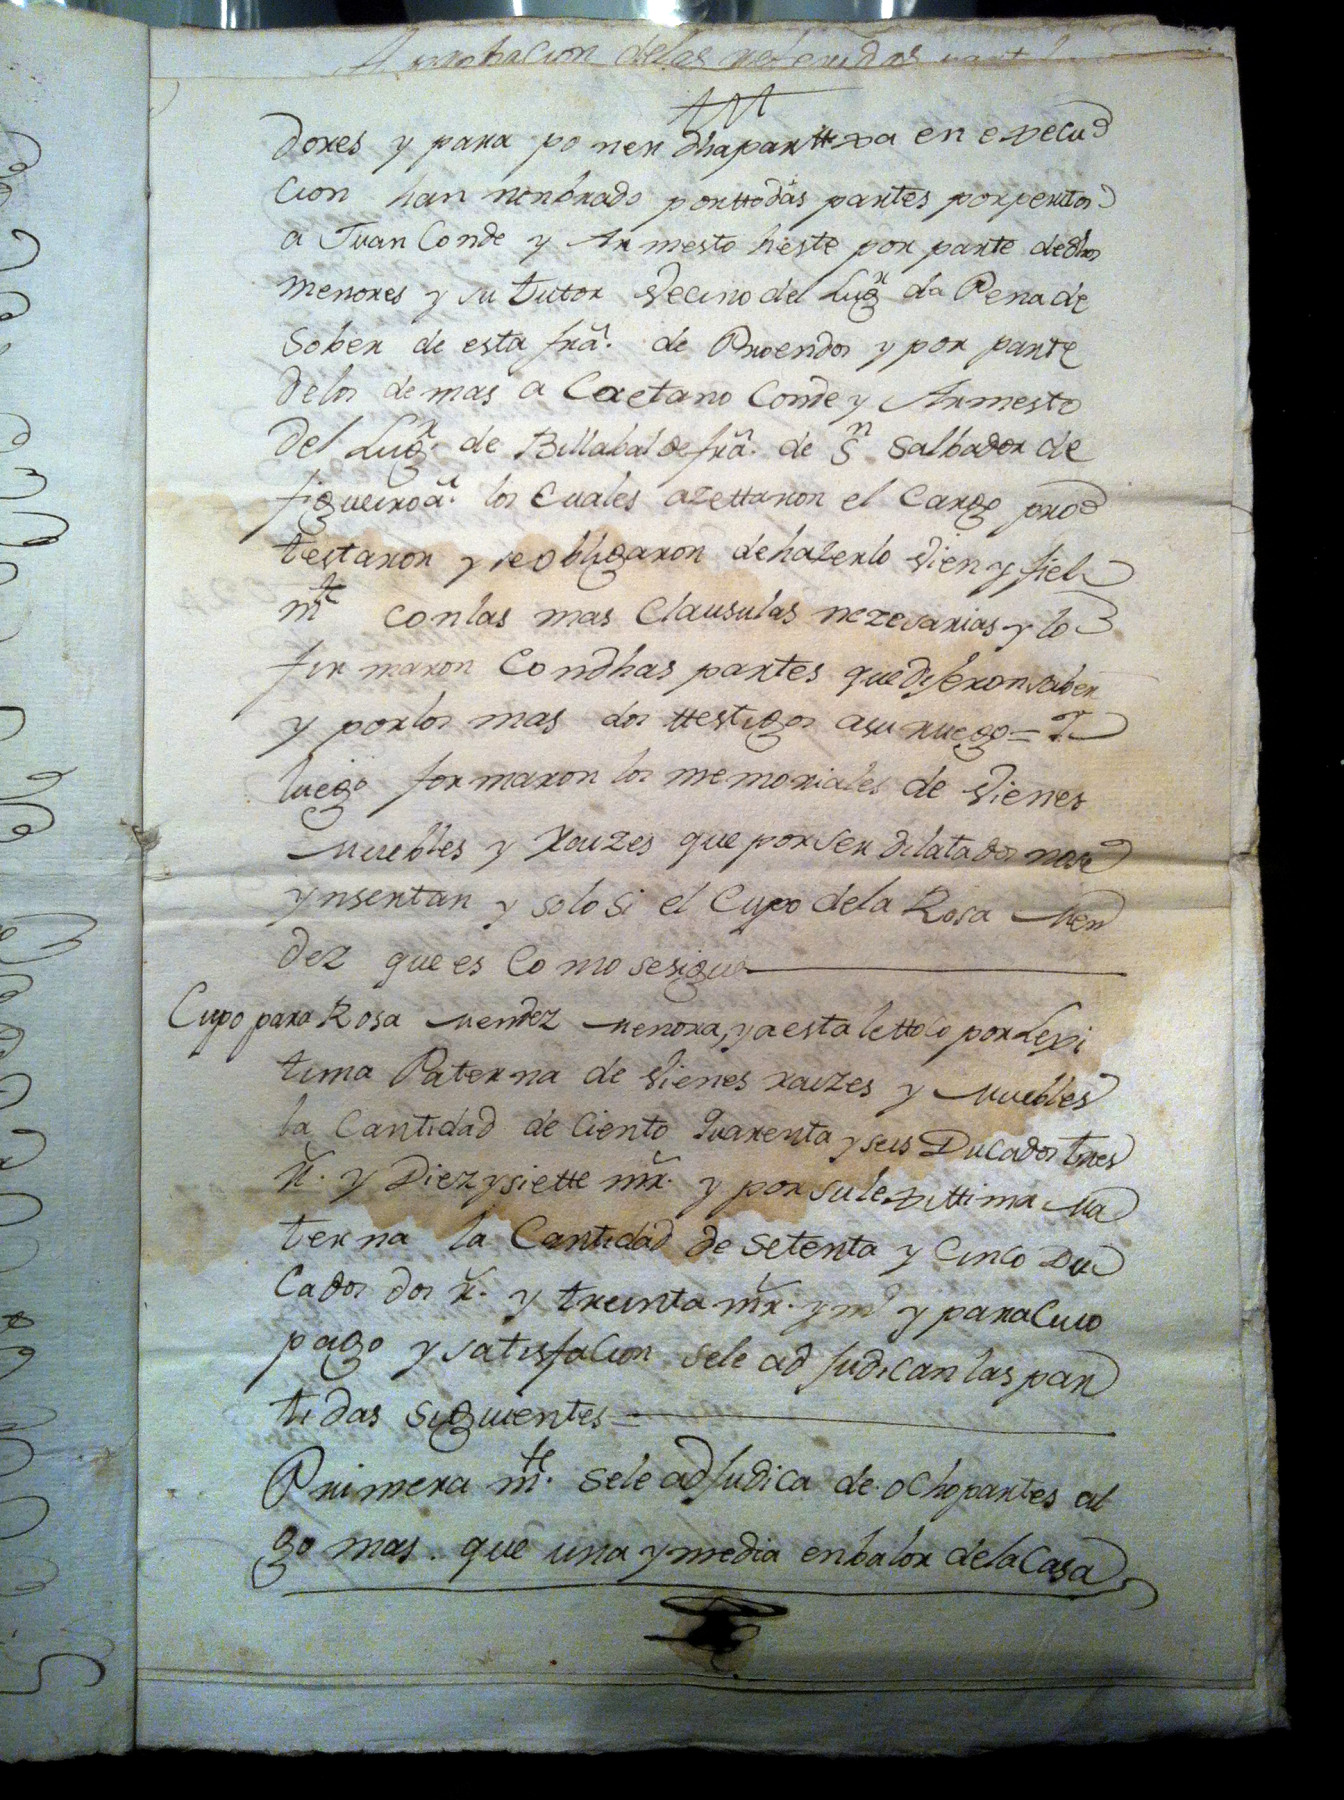 Aprobacion delas referidas
dores y para poner dhapartixa en execu
cion han nonbrado porttodas partes porperitos
a Juan Conde y Armesto heste por parte dedhos
menores y su tutor Vecino del Lugr da Pena de
Sober de esta fra. de Proendos y por parte
delos demas a Caetano Conde y Armesto
del Lugr. de Billabalde fra. de Sn Salbador de
figueiroa. los Cuales azettaron el Cargo pro
testaron y seobligaron dehazerlo Vien y fiel
mte conlas mas Clausulas nezesarias y lo
firmaron Condhas partes quedijeron saber
y porlos mas dos ttestigos asu ruego = I
luego formaron los memoriales de Vienes
Muebles y Raizes que porser dilatados nose
ynsertan y solosi el Cupo dela Rosa Men
dez que es Como sesigue
Cupo para Rosa Mendez Menora, yaesta lettoco porLexi
tima Paterna de Vienes raizes y Muebles
la Cantidad de Ciento Quarenta y seis Ducados tres
rs. y Diez ysiette mrs. y por sulexittima Ma
terna la Cantidad de setenta y Cinco Du
Cados dos rs. y treinta mrs. y mo y paraCuio
pago y satisfacion sele adjudican las par
tidas siguientes =
Primera mte. sele adjudica de ochopartes al
go mas. que una ymedia enbalor delaCasa